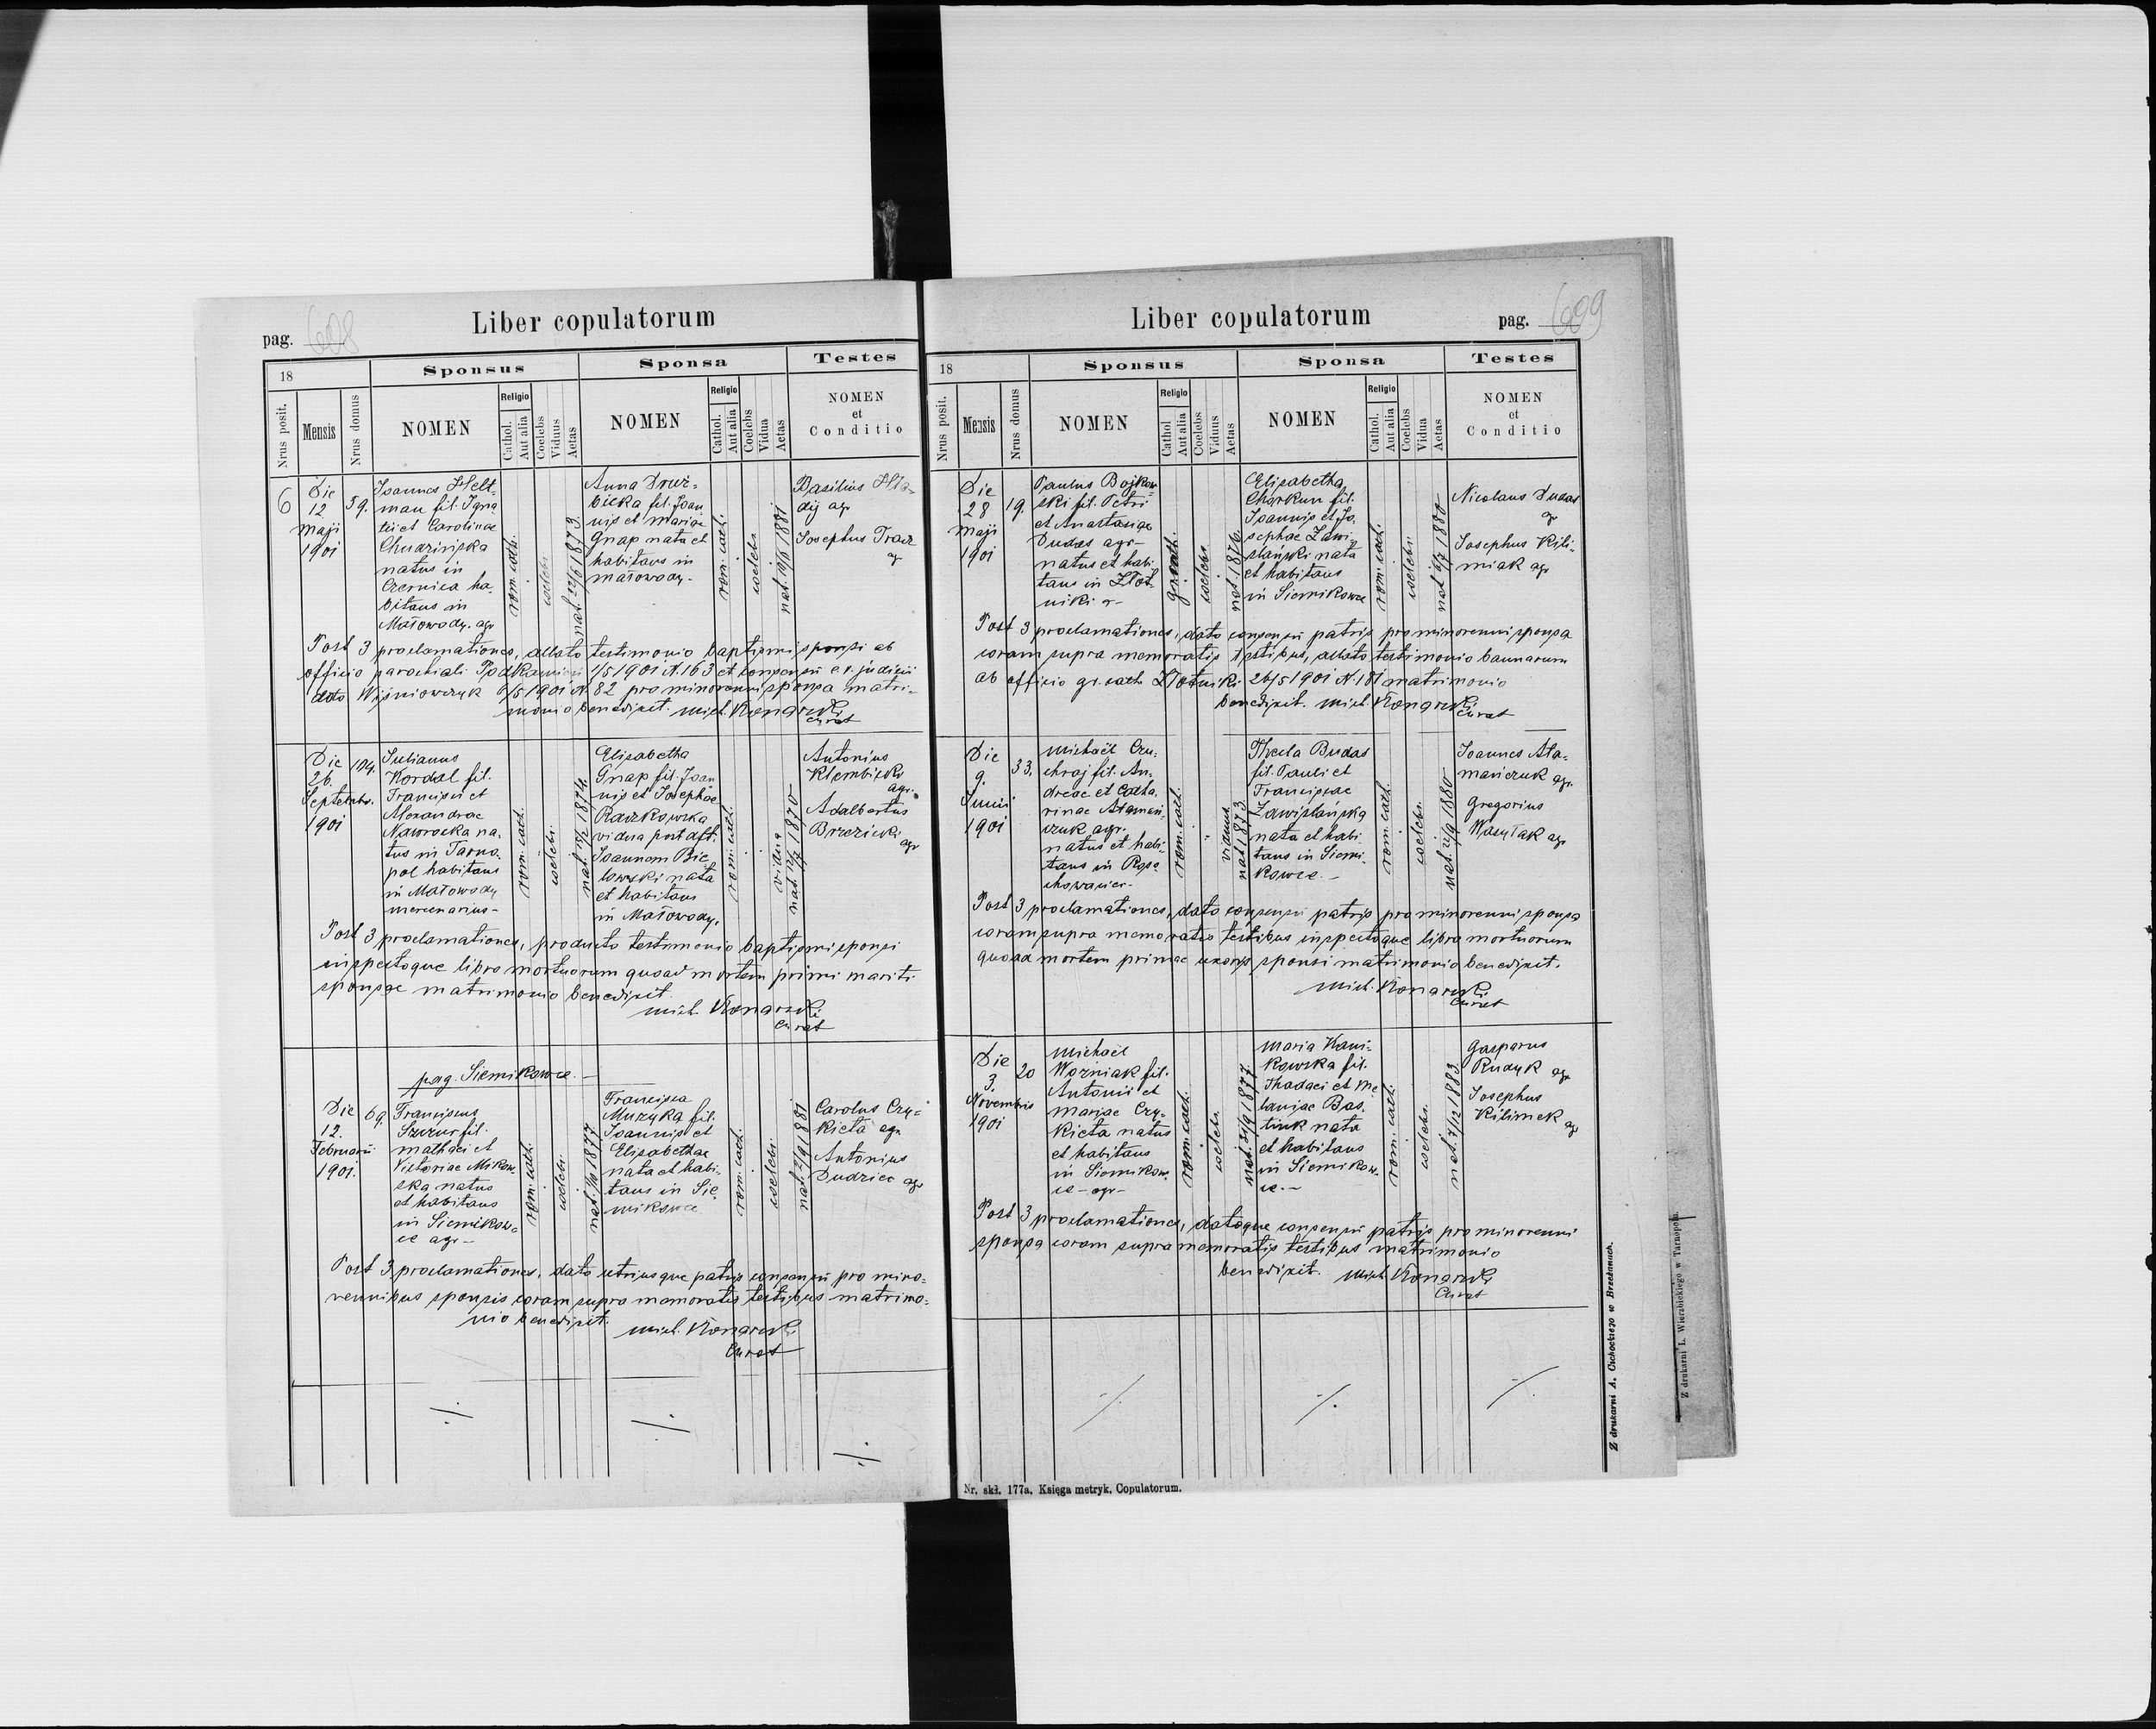 pag. 608
Liber copulatorum
18
Sponsus
Sponsa
Testes
Nrus posit.
Mensis
Nrus domus
NOMEN
Religio
Cathol.
Aut alia
Coelebs
Viduus
Aetas
NOMEN
Religio
Cathol.
Aut alia
Coelebs
Vidua
Aetas
NOMEN
et
Conditio
6
Die
12
Maji
1901
59.
Joannes Helt-
man fil. Igna
tii et Carolinae
Chudzińska
natus in
Czernica ha-
bitans in
Małowody. agr
rom. cath.
coelebs
nat. 22/6 1873.
Anna Druź-
bicka fil. Joan
nis et Mariae
Gnap nata et
habitans in
Małowody.
rom. cath.
coelebs
Basilius
agr
Josephus Tracz
agr
Post 3 proclamationes, allato testimonio baptismi sponsi ab
officio parochiali Podkamień 1/5 1901 N. 163 et consensu c. r. judicii
dato Wiśniowczyk 6/5 1901 N. 82 pro minorenni sponsa matri-
monio benedixit. Mich. Konarski
Curat
Die
26.
Septembr.
1901
104.
Julianus
Kordal fil.
Francisci et
Alexandrae
Nawrocka na-
tus in Tarno-
pol habitans
in Małowody
mercenarius-
rom. cath.
coelebs.
Elisabetha
Gnap fil. Joan
nis et Josephae
Raczkowska
vidua post dft.
Joannem Bie
lowski nata
et habitans
in Małowody.
rom. cath.
vidua
Antonius
Klembicki
agr.
Adalbertus
Brzezicki
agr
Post 3 proclamationes, producto testimonio baptismi sponsi
inspectoque libro mortuorum quoad mortem primi mariti
sponsae matrimonio benedixit.
Mich. Konarski
Curat
pag. Siemikowce.-
Die
12.
Februarii
1901.
69.
Franciscus
Szczur fil.
Mathaei et
Victoriae Mikow
ska natus
et habitans
in Siemikow-
ce agr-
rom. cath.
coelebs.
Francisca
Muzyka fil.
Joannis et
Elisabethae
nata et habi-
tans in Sie
mikowce
rom. cath.
coelebs.
nat. 2/9 1881
Carolus Czy-
kieta agr
Antonius
Dudziec agr
Post 3 proclamationes, dato utriusque patris consensu pro mino-
rennibus sponsis coram supra memoratis testibus matrimo-
nio benedixit.
Mich. Konarski
Curat
Liber copulatorum
pag. 609
18
Sponsus
Sponsa
Testes
Nrus posit.
Mensis
Nrus domus
NOMEN
Religio
Cathol
Aut alia
Coelebs
Viduus
Aetas
NOMEN
Religio
Cathol.
Aut alia
Coelebs
Vidua
Aetas
NOMEN
et
Conditio
Die
28
Maji
1901
19.
Paulus Bojkow
ski fil. Petri
et Anastasiae
Dudas agr-
natus et habi-
tans in Złot-
niki
gr. cath.
coelebs
nat. 1876.
Elisabetha
Charkun fil.
Joannis et Jo-
sephae Zawi-
slański nata
et habitans
in Siemikowce
rom. cath.
coelebs.
Nicolaus Dudas
agr
Josephus Kili-
miak agr
Post 3 proclamationes, dato consensu patris pro minorenni sponsa
coram supra memoratis testibus, allato testimonio bannorum
ab officio gr. cath. Złotniki 26/5 1901 N. 181 matrimonio
benedixit. Mich. Konarski
Curat
Die
9.
Junii
1901
33.
Michaël Czu-
chraj fil. An-
dreae et Catha-
rinae Atamań-
czuk agr.
natus et habi-
tans in Roso-
chowaniec-
rom. cath.
viduus
nat. 1873.
Thecla Budas
fil. Pauli et
Franciscae
Zawislańska
nata et habi-
tans in Siemi-
kowce.-
rom. cath.
coelebs.
Joannes Ata-
mańczuk agr.
Gregorius
Wasylak agr
Post 3 proclamationes, dato consensu patris pro minorenni sponsa
coram supra memoratis testibus inspectoque libro mortuorum
quoad mortem primae uxoris sponsi matrimonio benedixit.
Mich. Konarski
Curat
Die
3.
Novembris
1901
20
Michaël
Woźniak fil.
Antonii et
Mariae Czy-
kieta natus
et habitans
in Siemikow-
ce - agr-
rom. cath.
coelebs.
Maria Kani-
kowska fil.
Thadaei et Me
laniae Bas-
tiuk nata
et habitans
in Siemikow-
ce.-
rom. cath.
coelebs.
nat. 7/12 1883
Gasparus
Rudyk agr
Josephus
Kilimek agr
Post 3 proclamationes, datoque consensu patris pro minorenni
sponsa coram supra memoratis testibus matrimonio
benedixit. Mich. Konarski
Curat
Nr. skł. 177a. Księga metryk, Copulatorum.
Z drukarni A. Cichockiego w Brzeżanach.
Z drukarni L. Wierzbickiego w Tarnopolu.